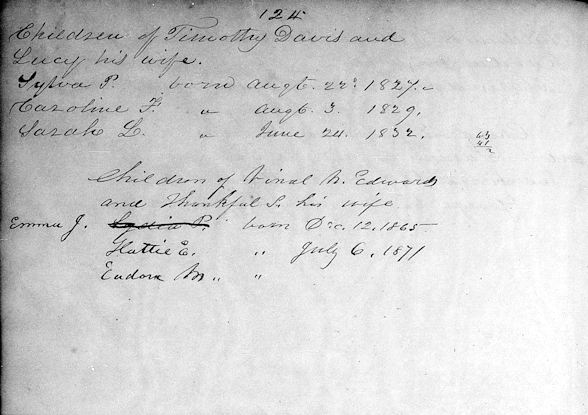 124
Children of Timothy Davis and
Lucy his wife.
Sylva P. born Augt. 22d 1827.
Caroline F. " Augt. 3. 1829.
Sarah L. " June 24. 1832.
Children of Vinal N. Edwards
and Thankful S. his wife
Emma J. Lydia P. born Dec. 12. 1865
Hattie E. " July 6. 1871
Eudora M. " "